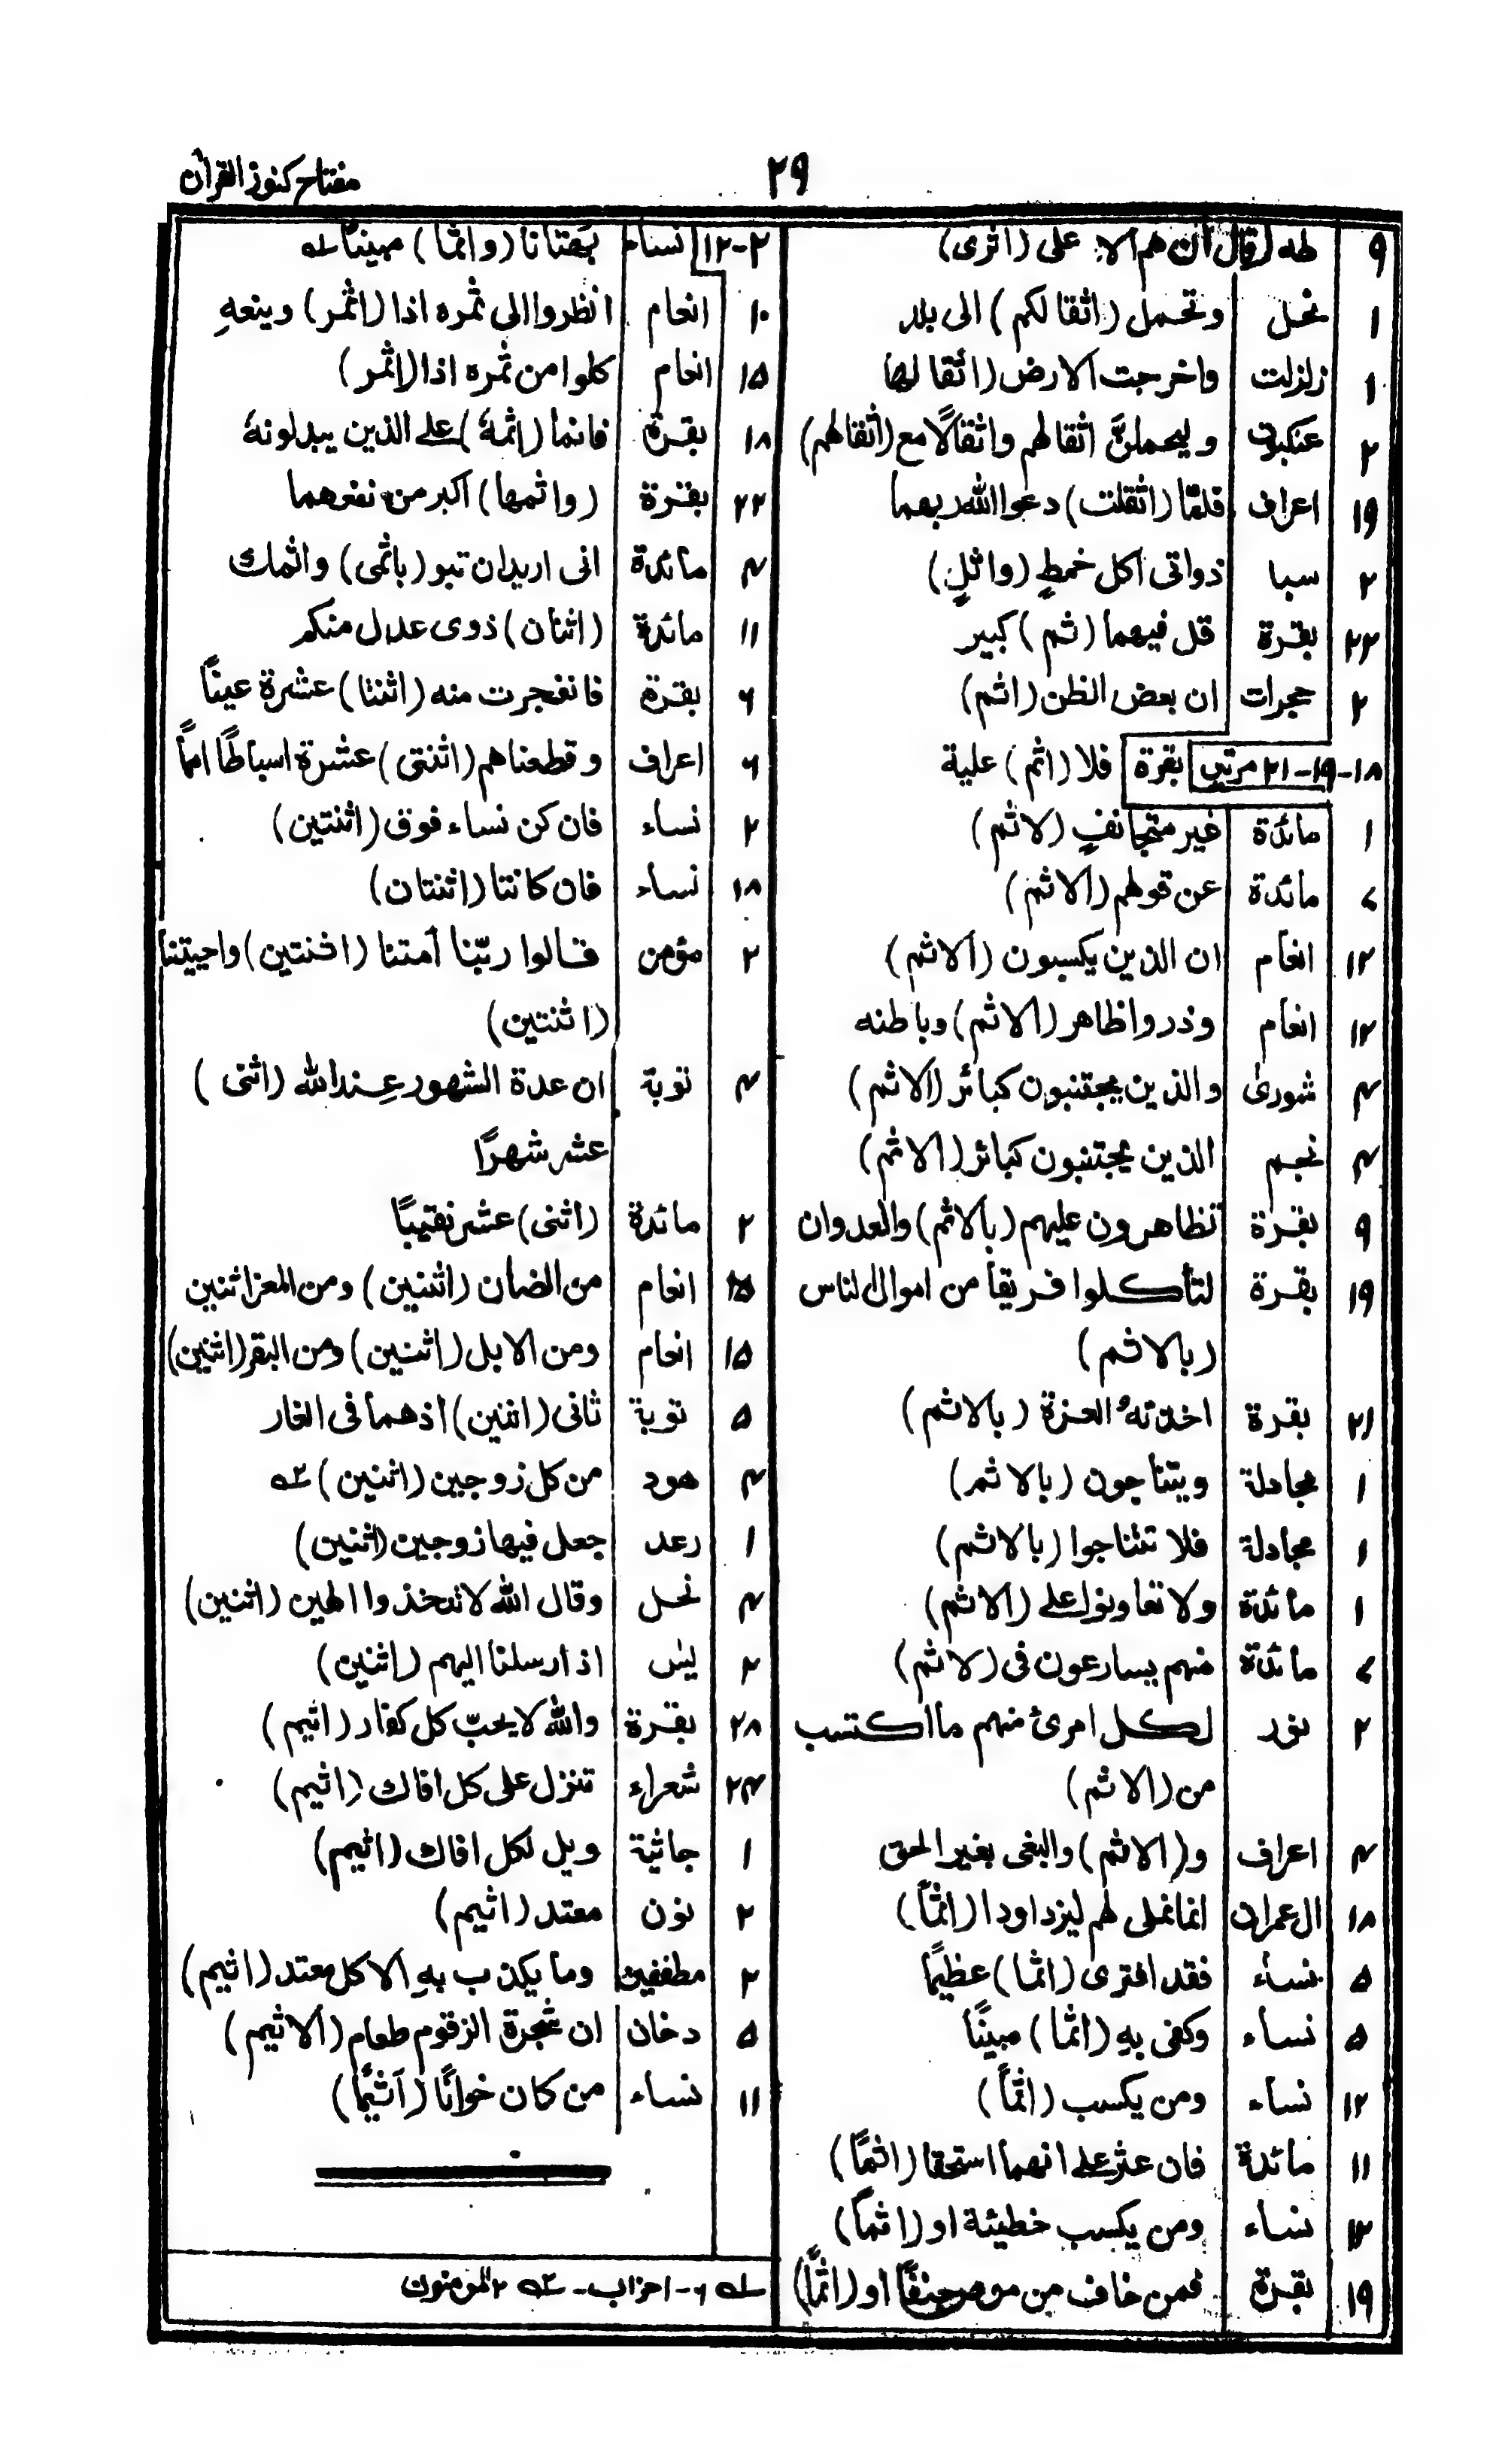 مفتاح كنوز القرآن
٢٩
٩ طه قال ان هم الا. على (اثرى)
١ نحل وتحمل (اثقالكم) الى بلد
١ زلزلت واخرجت الارض (اثقالها
٢ عنكبوت وليحملنَّ اثقالهم واثقالًا مع (اثقالهم)
١٩ اعراف فلمّا (اثقلت) دعوا الله ربهما
٢ سبا ذواتى اكل خمطٍ (واثلٍ)
٢٢ بقرة قل فيهما (ثم) كبير
٢ حجرات ان بعض الظن (اثم)
١٨-١٩-٢١ مرتين بقرة فلا (اثم) علية
١ مائدة غير متجانفٍ (لاثم)
٧ مائدة عن قولهم (الاثم)
١٢ انعام ان الذين يكسبون (الاثم)
١٢ انعام وذروا ظاهر (الاثم) وباطنه
٤ شورىٰ والذين يجتنبون كبائر (الاثم)
٤ نجم الذين يجتنبون كبائر (الاثم)
٩ بقرة تظاهرون عليهم (بالاثم) والعدوان
١٩ بقرة لتأكلوا فريقا من اموال الناس
(بالاثم)
٢١ بقرة اخذتهُ العزة (بالاثم)
١ مجادلة ويتناجون (بالاثم)
١ مجادلة فلا تتناجوا (بالاثم)
١ مائدة ولا تعاونوا على (الاثم)
٧ مائدة منهم يسارعون فى (لاثم)
٢ نور لكل امرئ منهم ما اكتسب
من (الاثم)
٤ اعراف و(الاثم) والبغى بغير الحق
١٨ ال عمران انما نملى لهم ليزدادوا (اثماً)
٥ نساء فقد افترى (اثما) عظيمًا
٥ نساء وكفى بهِ (اثما) مبينًا
١٢ نساء ومن يكسب (اثماً)
١١ مائدة فان عثر على انهما استحقا (اثمًا)
١٢ نساء ومن يكسب خطيئة او (اثماً)
١٩ بقرة فمن خاف من موص جنفًا او (اثمًا)
٢-١٢ نساء بهتانا (واثما) مبينا ؎١
١٠ انعام انظروا الى ثمره اذا (اثمر) وينعهِ
١٥ انعام كلوا من ثمره اذا (اثمر)
١٨ بقرة فانما (اثمهٗ) على الذين يبدلونهٗ
٢٢ بقرة (واثمها) اكبر من نفعهما
٤ مائدة انى اريد ان تبو (باثمى) واثمك
١١ مائدة (اثنان) ذوى عدل منكم
٦ بقرة فانفجرت منه (اثنتا) عشرة عينًا
٦ اعراف وقطعناهم (اثنتى) عشرة اسباطًا امماً
٢ نساء فان كن نساء فوق (اثنتين)
١٨ نساء فان كانتا (اثنتان)
٢ مؤمن قالوا ربّنا امتنا (اثنتين) واحييتنا
(اثنتين)
٤ توبة ان عدة الشهور عند الله (اثنى)
عشر شهرًا
٢ مائدة (اثنى) عشر نقيبًا
١٥ انعام من الضان (اثنين) ومن المعز اثنين
١٥ انعام ومن الابل (اثنين) ومن البقر (اثنين)
٥ توبة ثانى (اثنين) اذهما فى الغار
٤ هود من كل زوجين (اثنين) ؎٢
١ رعد جعل فيها زوجين (اثنين)
٤ نحل وقال الله لا تتخذوا الهين (اثنين)
٢ يٰس اذ ارسلنا اليهم (اثنين)
٢٨ بقرة والله لا يحبّ كل كفار (اثيم)
٢٤ شعراء تنزل على كل افاك (اثيم)
١ جاثية ويل لكل افاك (اثيم)
٢ نون معتد (اثيم)
٢ مطففين وما يكذب بهِ الا كل معتد (اثيم)
٥ دخان ان شجرة الزقوم طعام (الاثيم)
١١ نساء من كان خوانًا (اثيمًا)
؎١ ٦- احزاب - ؎٢ ٢ المومنون